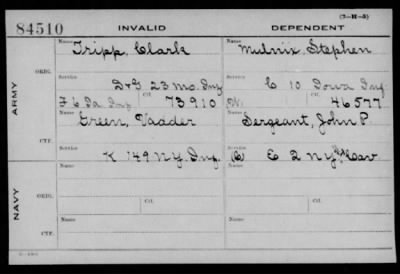 (7-11-3)
84510 INVALID DEPENDENT
Name Tripp, Clark Name Mulnix, Stephen
ORIG.
Service D & I 23 Mo. Inf Service C 10 Iowa Inf.
F 6 Ia Inf Ctf. 73910 W. Ctf. 46577
ARMY
Name Green, Vadder Name Sergeant, John P.
CTF.
Service K 149 N.Y. Inf. Service E 2 N.Y. Cav
Name Ctf. Name Ctf.
ORIG.
Service Service
NAVY
Name Name
CTF.
Service Service